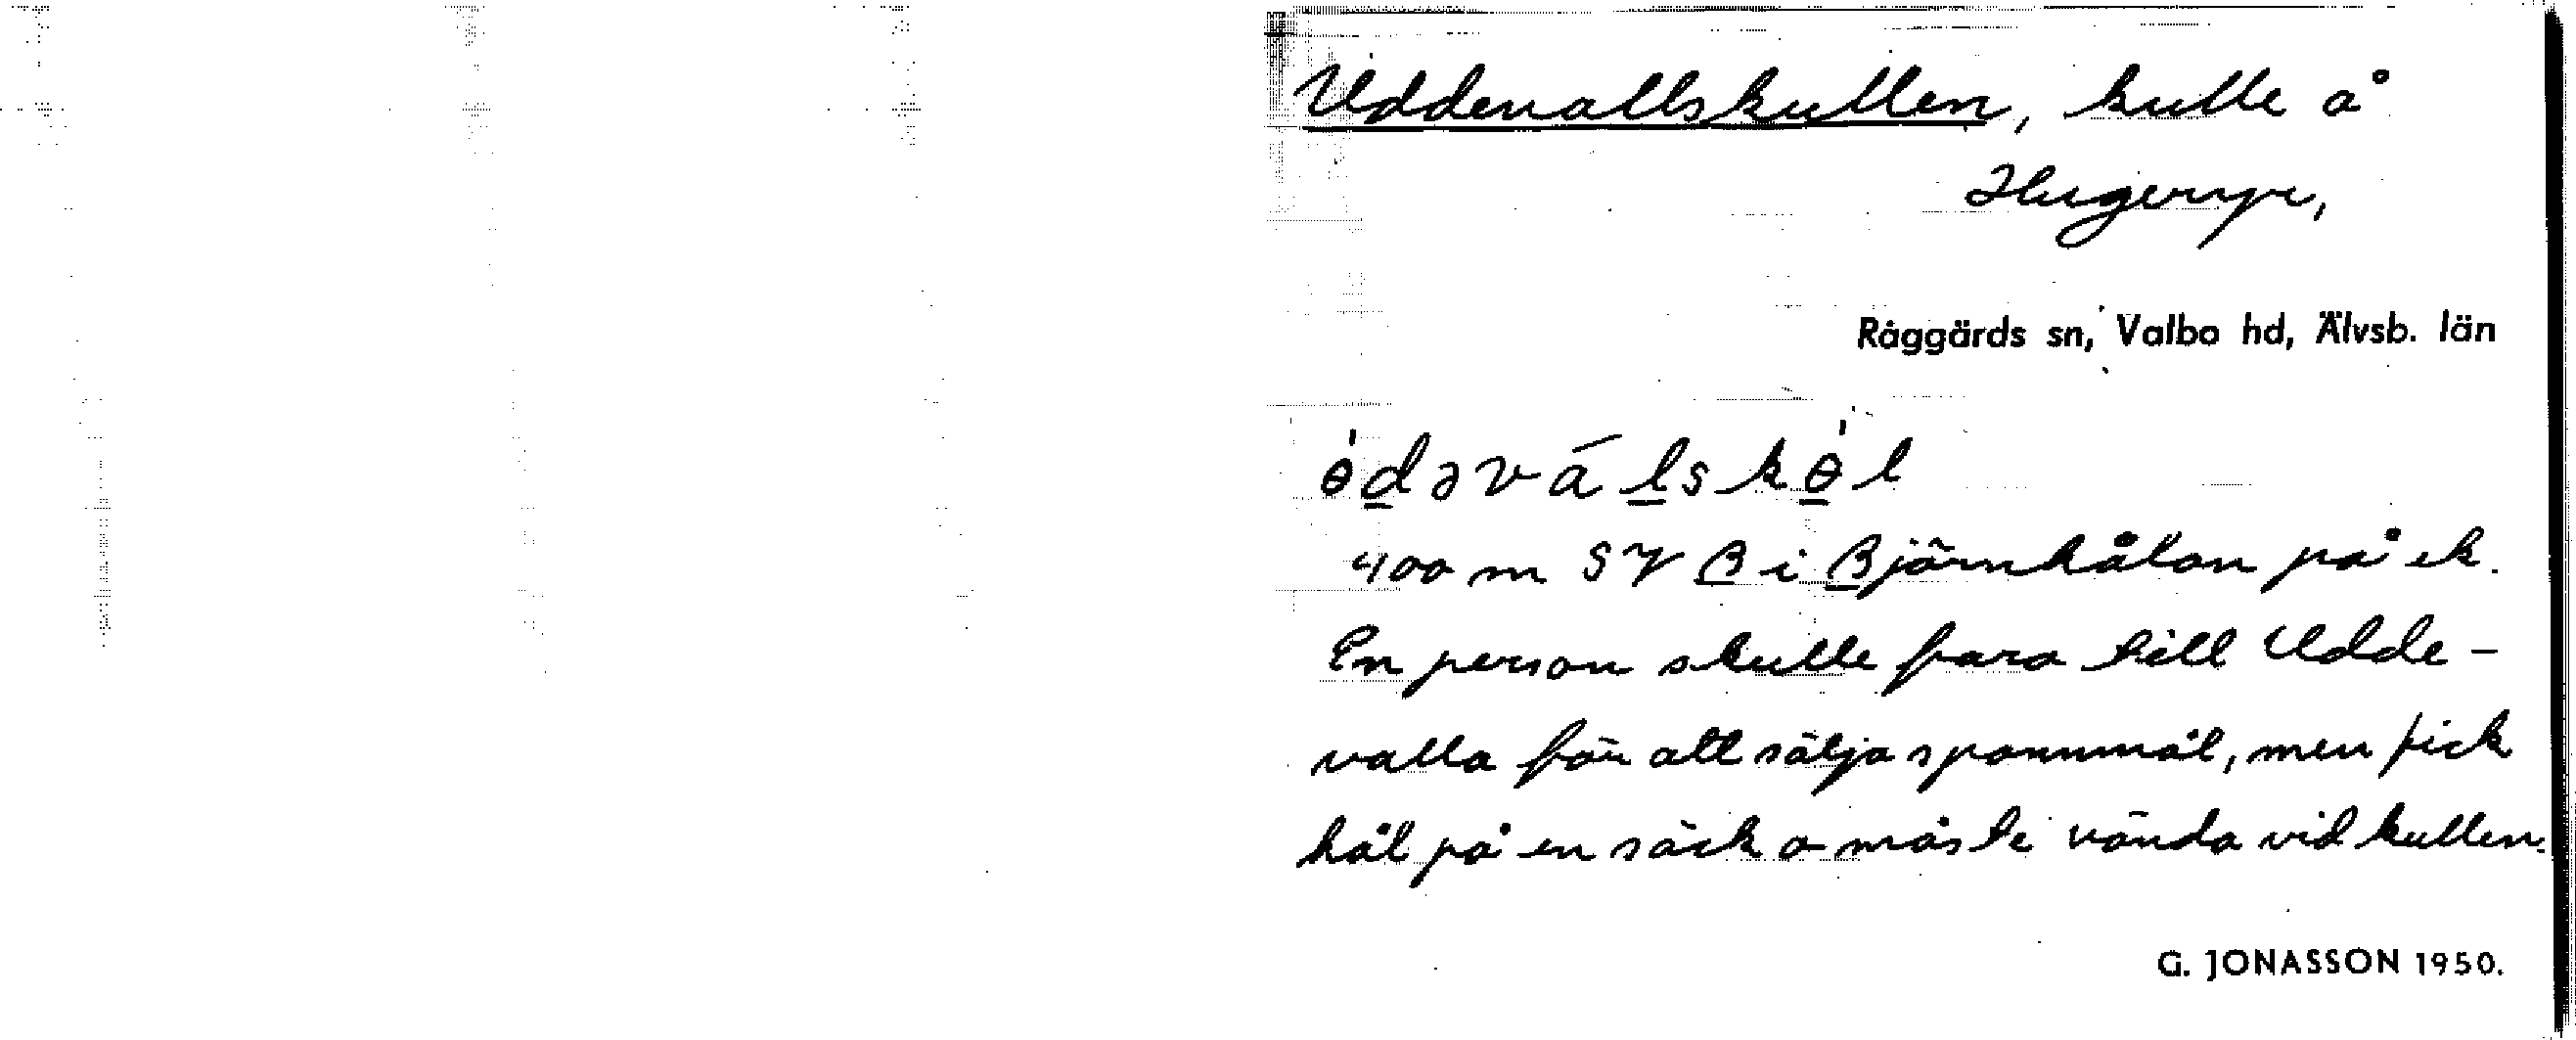 Uddevallskullen, kulle å
Hugeryr,
Råggärds sn, Valbo hd, Älvsb. län
ɵ̀dəválskɵ̀l
400 m SV B i Björnhålan på ek.
En person skulle fara till Udde-
valla för att sälja spannmål, men fick
hål på en säck o måste vända vid kullen.
G. JONASSON 1950.